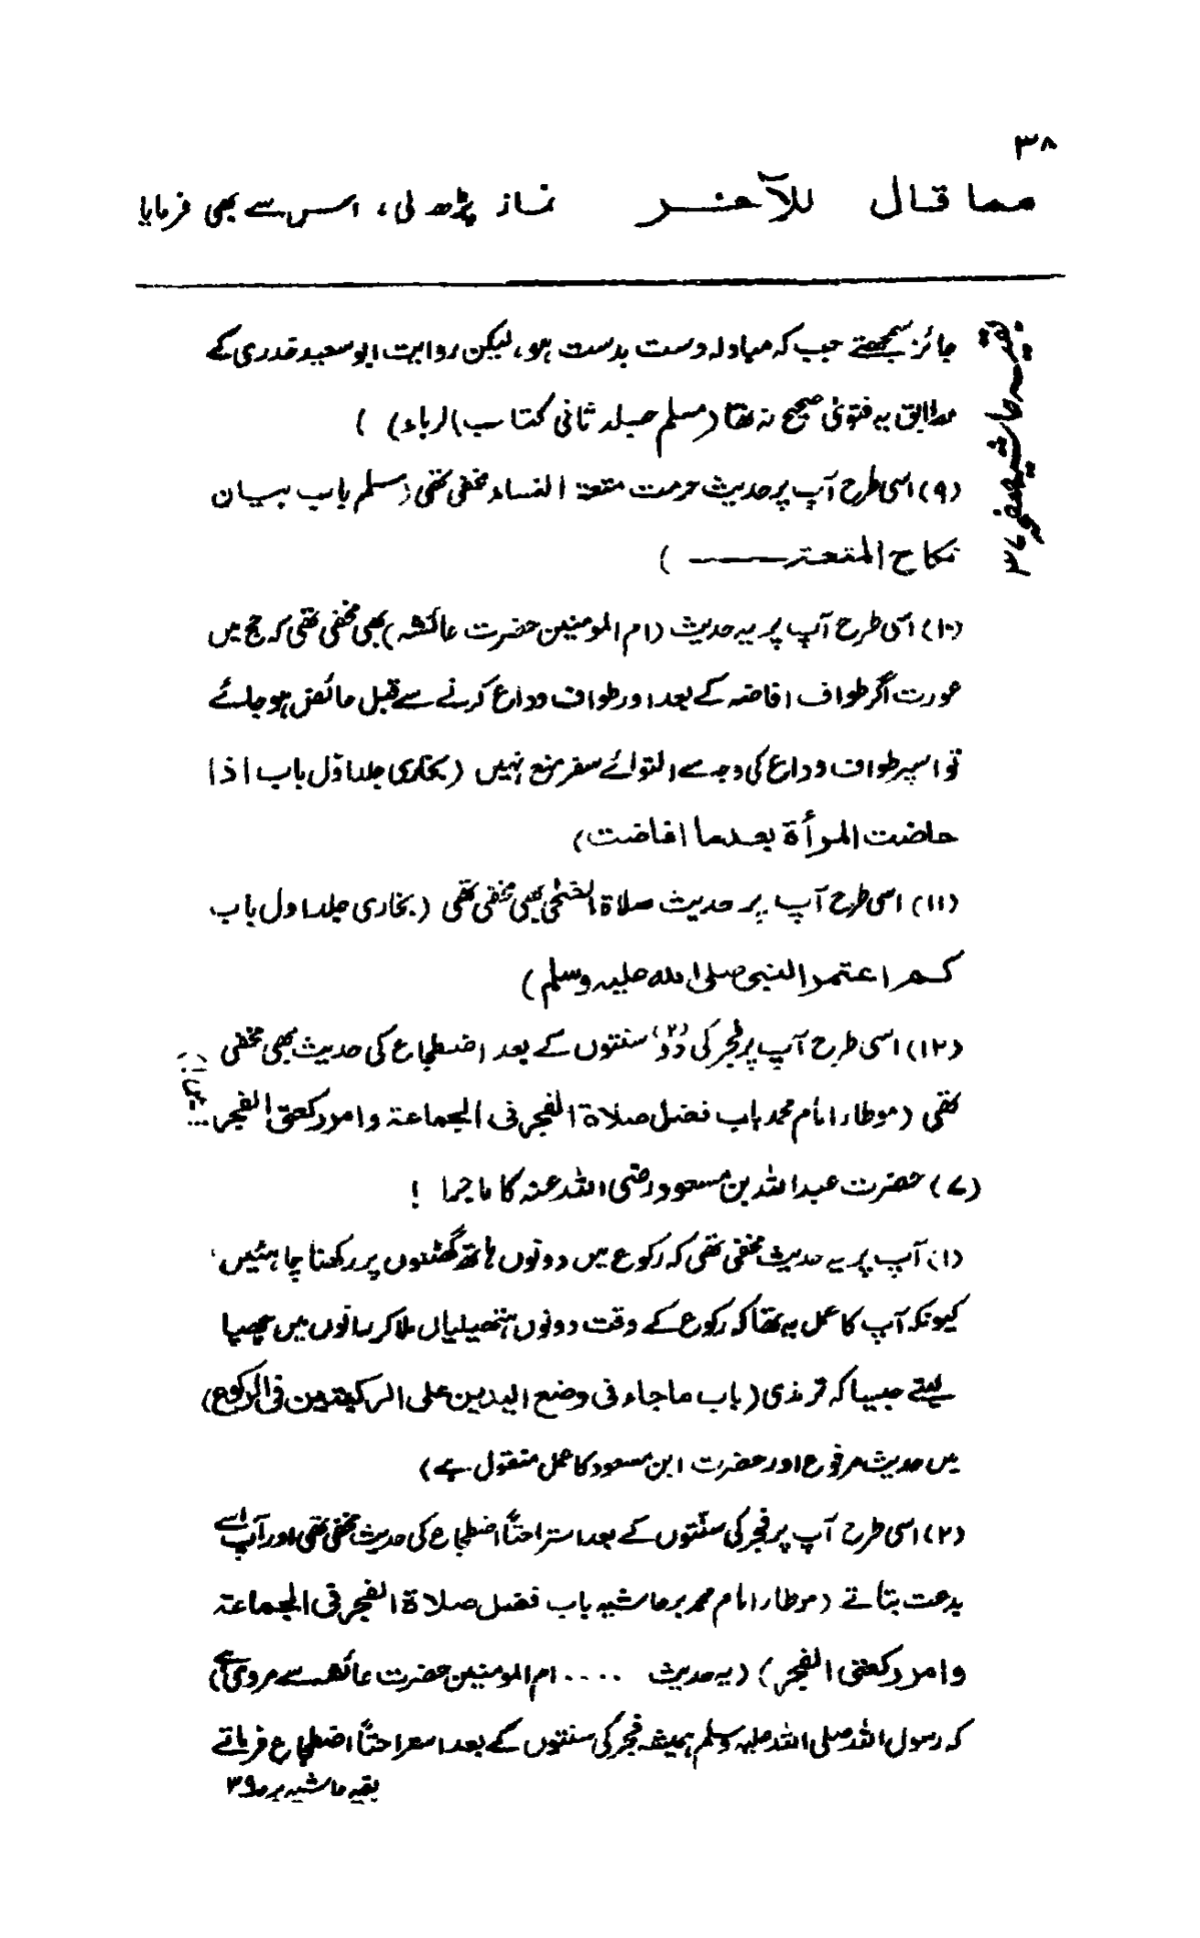 ۳۸
مما قال للآخر نماز پڑھ لی، اس سے بھی فرمایا
بقیہ حاشیہ صفحہ ۳۷
جائز سمجھتے جب کہ مبادلہ دست بدست ہو، لیکن روایت ابو سعید خدری کے
مطابق یہ فتویٰ صحیح نہ تھا (مسلم جلد ثانی کتاب الرباء)
(۹) اسی طرح آپ پر حدیث حرمت متعۃ النساء مخفی تھی (مسلم باب بیان
نکاح المتعتہ ــــــ)
(۱۰) اسی طرح آپ پر یہ حدیث (ام المومنین حضرت عائشہ) بھی مخفی تھی کہ حج میں
عورت اگر طواف افاضہ کے بعد اور طواف وداع کرنے سے قبل حائض ہو جائے
تو اسپر طواف وداع کی وجہ سے التوائے سفر منع نہیں (بخاری جلد اوّل باب اذا
حاضت المرأۃ بعد ما افاضت)
(۱۱) اسی طرح آپ پر حدیث صلاۃ الضحٰی بھی مخفی تھی (بخاری جلد اول باب
کم اعتمر النبی صلی اللہ علیہ وسلم)
(۱۲) اسی طرح آپ پر فجر کی دو (۲) سنتوں کے بعد اضطجاع کی حدیث بھی مخفی
تھی (موطا، امام محمد باب فضل صلاۃ الفجر فی الجماعۃ وامر رکعتی الفجر...
(۷) حضرت عبداللہ بن مسعود رضی اللہ عنہ کا ماجرا !
(۱) آپ پر یہ حدیث مخفی تھی کہ رکوع میں دونوں ہاتھ گھٹنوں پر رکھنا چاہئیں،
کیونکہ آپ کا عمل یہ تھا کہ رکوع کے وقت دونوں ہتھیلیاں ملا کر رانوں میں چھپا
لیتے جیسا کہ ترمذی (باب ماجاء فی وضع الیدین علی الرکبتین فی الرکوع)
میں حدیث مرفوع اور حضرت ابن مسعود کا عمل منقول ہے)
(۲) اسی طرح آپ پر فجر کی سنّتوں کے بعد استراحتاً اضطجاع کی حدیث مخفی تھی اور آپ اسے
بدعت بتاتے (موطا، امام محمد بر حاشیہ باب فضل صلاۃ الفجر فی الجماعتہ
وامر رکعتی الفجر) (یہ حدیث .... ام المومنین حضرت عائشہ سے مروی ہے)
کہ رسول اللہ صلی اللہ علیہ وسلم ہمیشہ فجر کی سنتوں کے بعد استراحتاً اضطجاع فرماتے
بقیہ حاشیہ بر ص۳۹